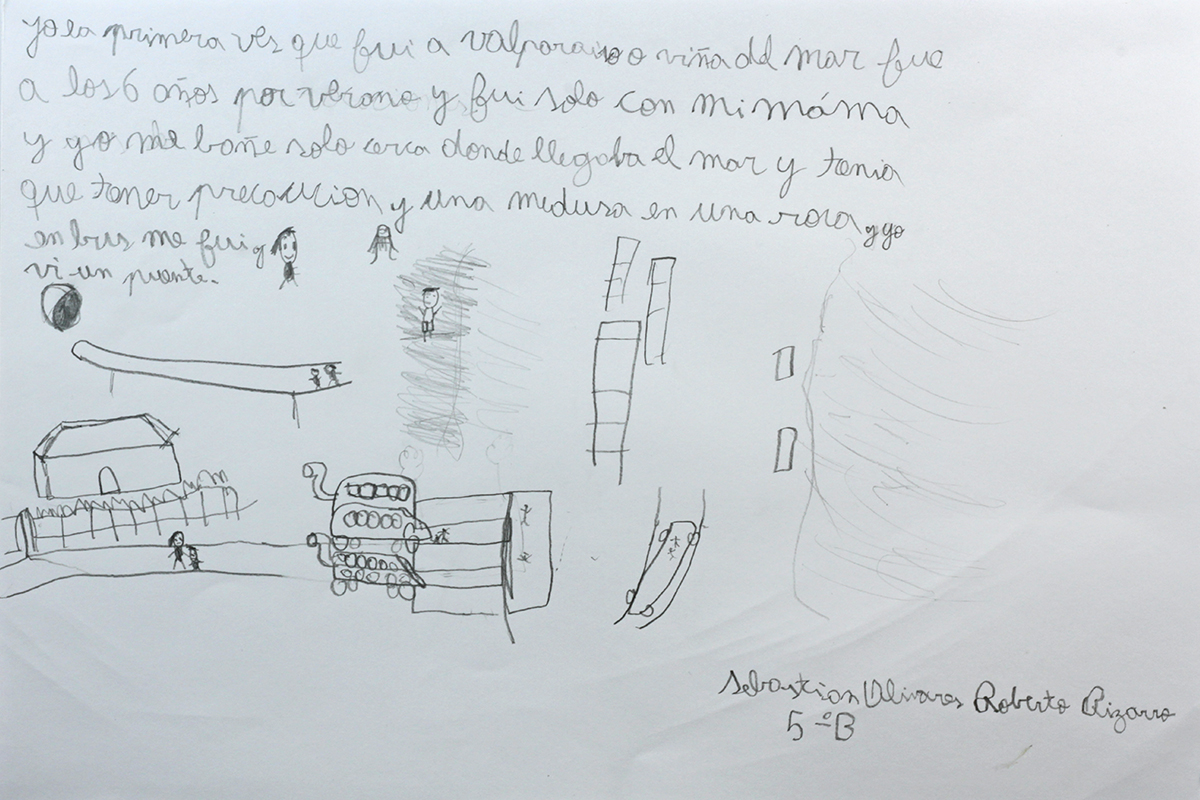 yo la primera ves que fui a valparaiso o viña del mar fue
a los 6 años por verano y fui solo con mi máma
y yo me bañe solo cerca donde llegaba el mar y tenia
que tener precaucion y una medusa en una roca y yo
en bus me fui y
vi un puente.
Sebastian Olivares Roberto Pizarro
5ºB